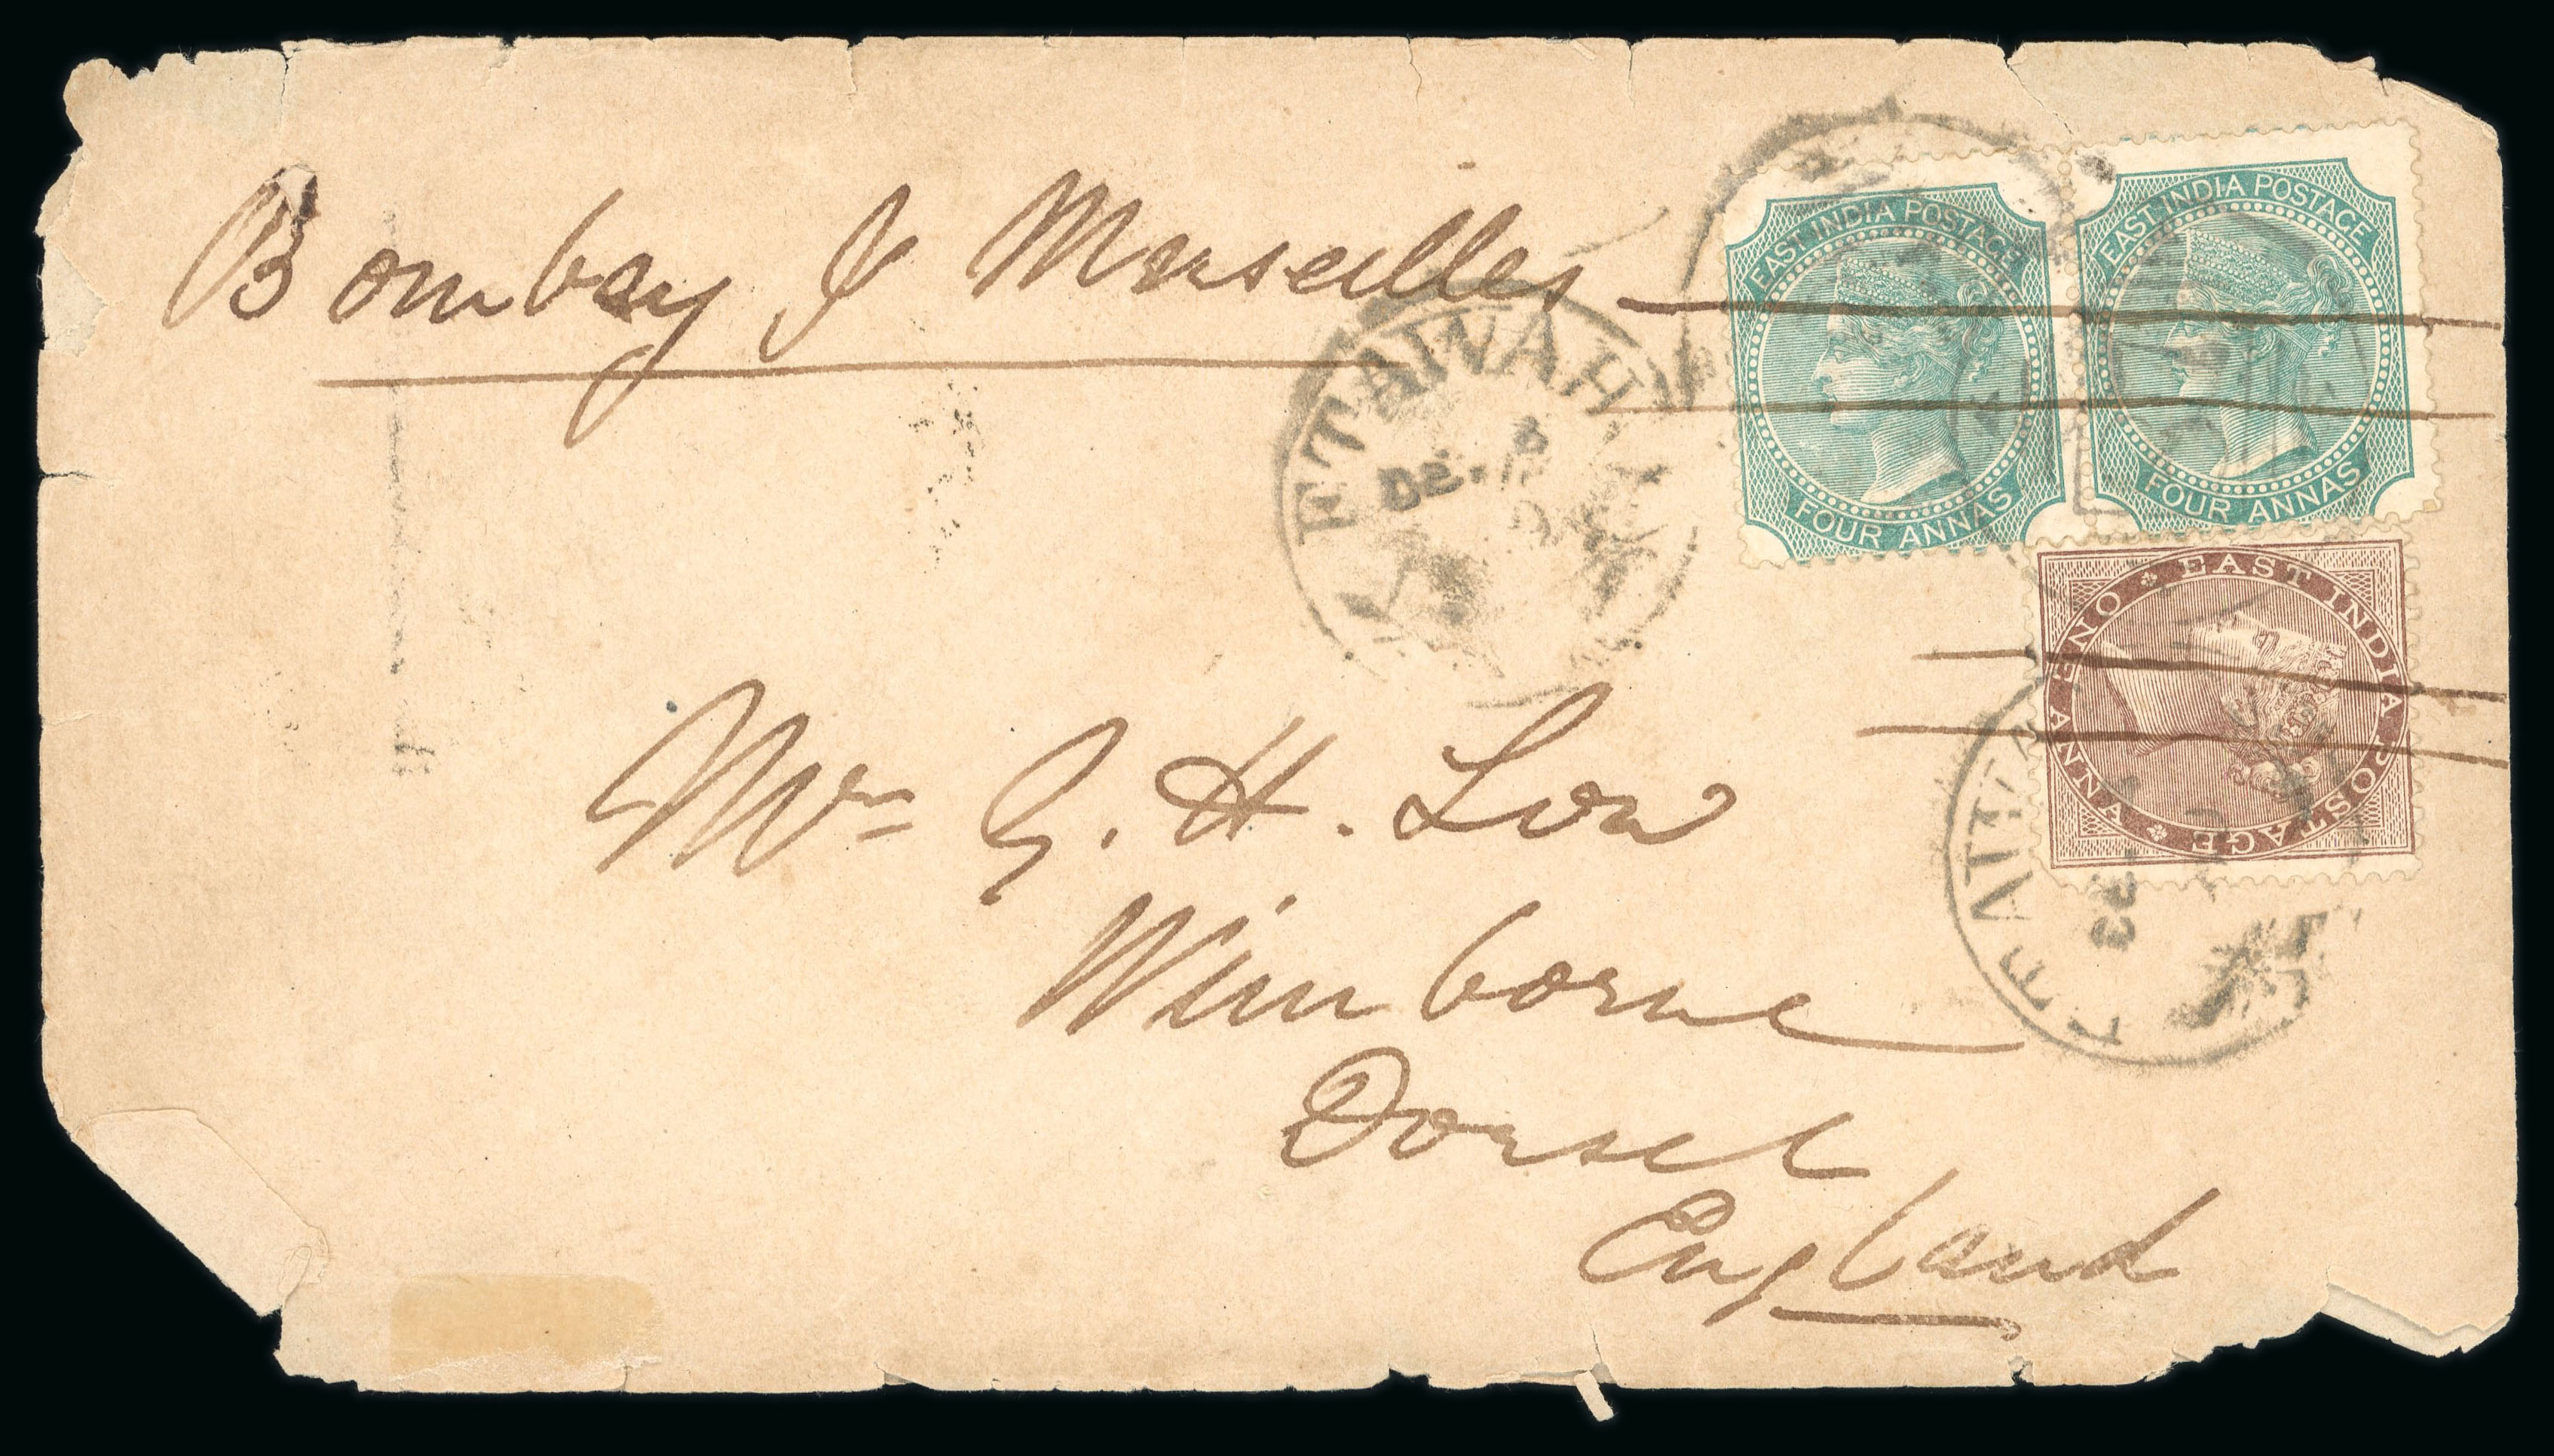 Bombay & Marseilles
EAST INDIA POSTAGE
FOUR ANNAS
EAST INDIA POSTAGE
FOUR ANNAS
ETAWAH
DE.
EAST INDIA POSTAGE
ONE ANNA
Mrs G. H. Low
Wimborne
Dorset
England